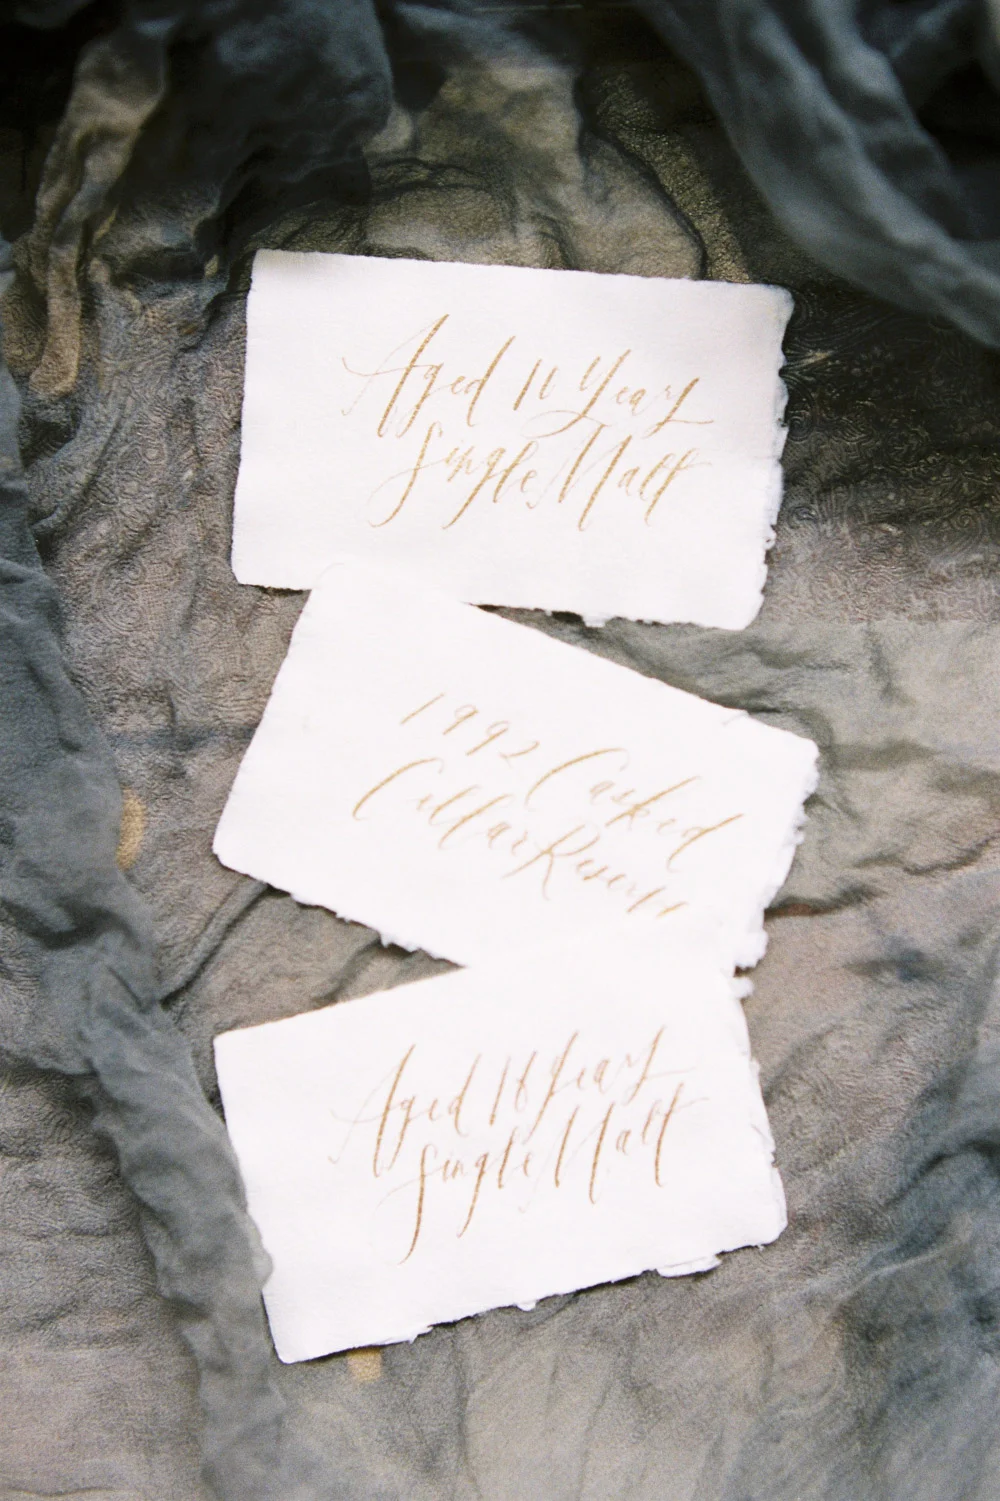 Aged Years
Single Malt
1992 Casked
Cellar Reserve
Aged 18 Years
Single Malt